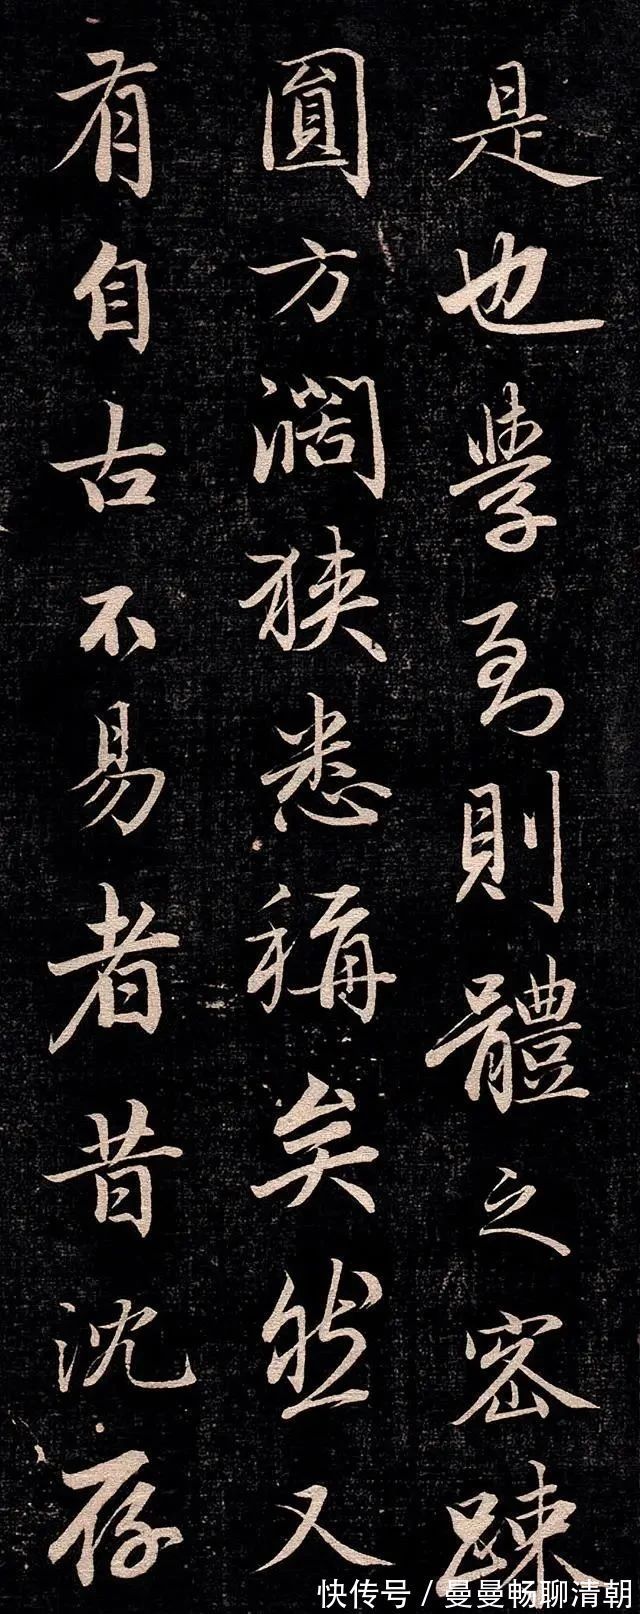 是也學至則體之密踈
圓方濶狹悉稱矣然又
有自古不易者昔沈存
快传号/曼曼畅聊清朝